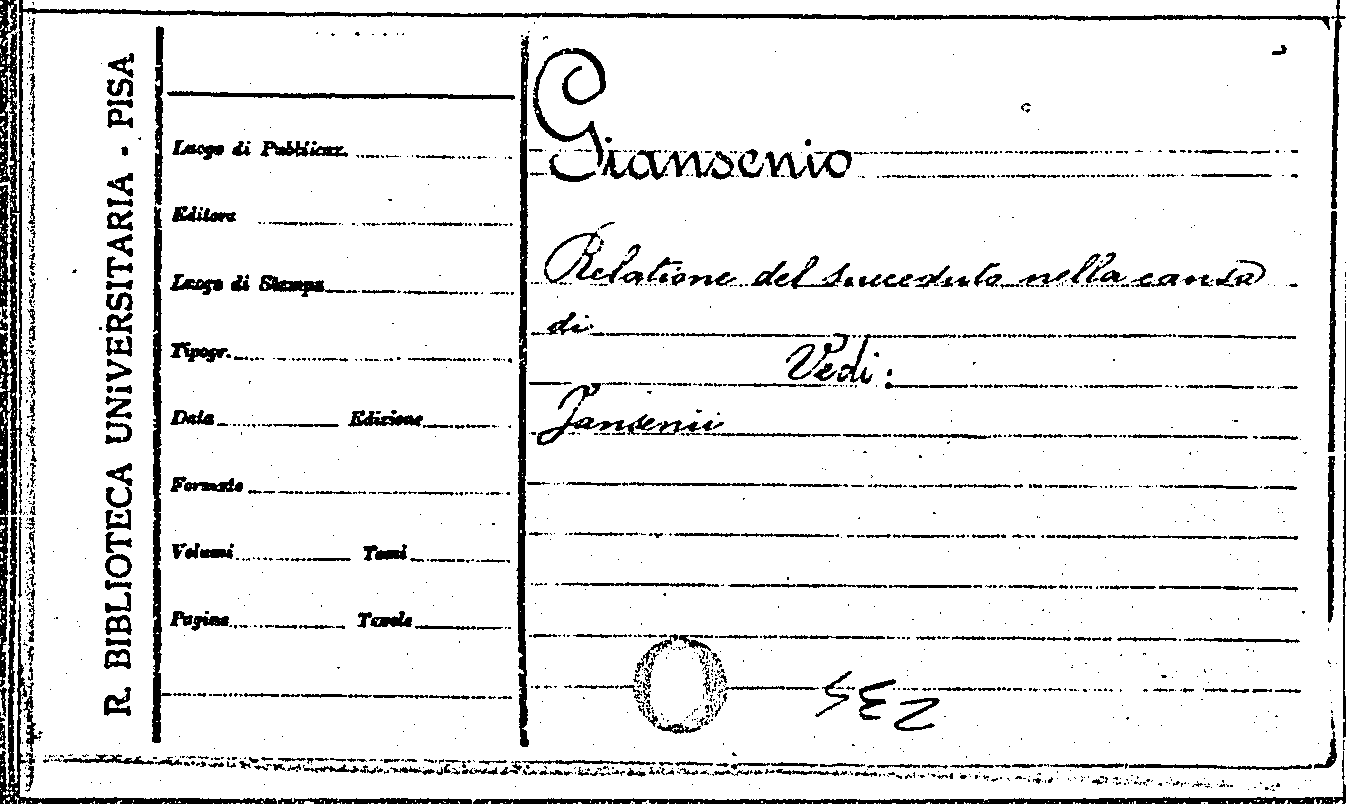 R. BIBLIOTECA UNIVERSITARIA - PISA
Luogo di Pubblicaz.
Editore
Luogo di Stampa
Tipogr.
Data Edizione
Formato
Volumi Tomi
Pagine Tavole
Giansenio
Relatione del succeduto nella causa
di
Vedi:
Jansenii